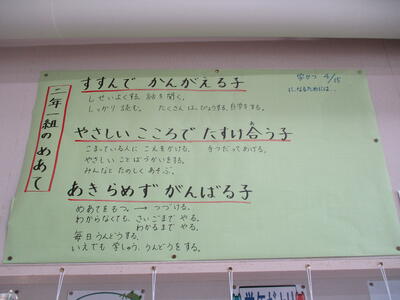 二年一組の めあて
学かつ 4/15
に、なるためには…
すすんで かんがえる子
しせいよくする。話を聞く。
しっかり読む。 たくさんはっぴょうする。自学をする。
やさしい こころで たすけ合う子
こまっている人に こえをかける。 手つだってあげる。
やさしい ことばづかいをする。
みんなと たのしく あそぶ。
あきらめず がんばる子
めあてをもつ。→ つづける。
わからなくても、さいごまで やる。
わかるまで やる。
毎日うんどうする。
いえでも 学しゅう、うんどうをする。